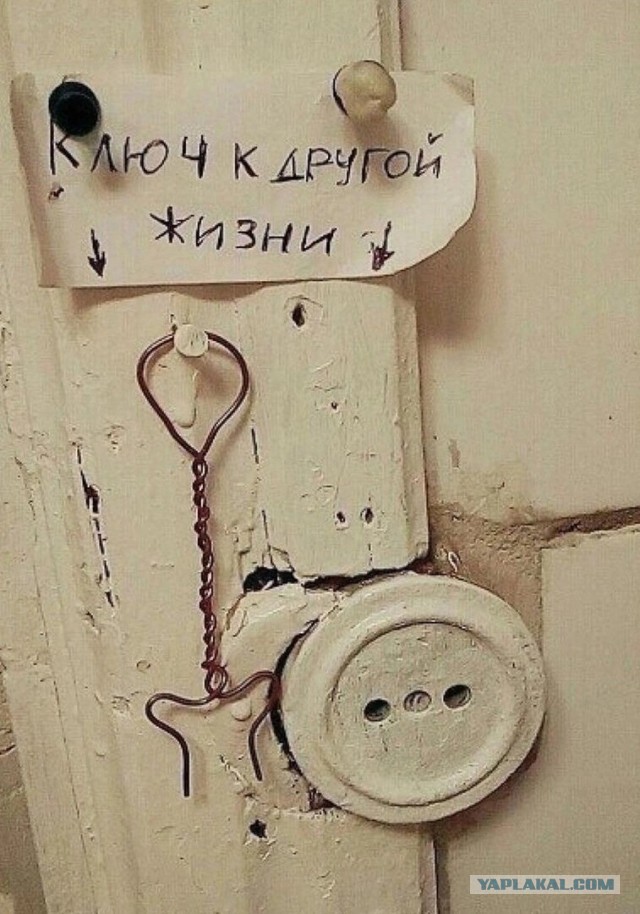 Ключ к другой
жизни
YAPLAKAL.COM